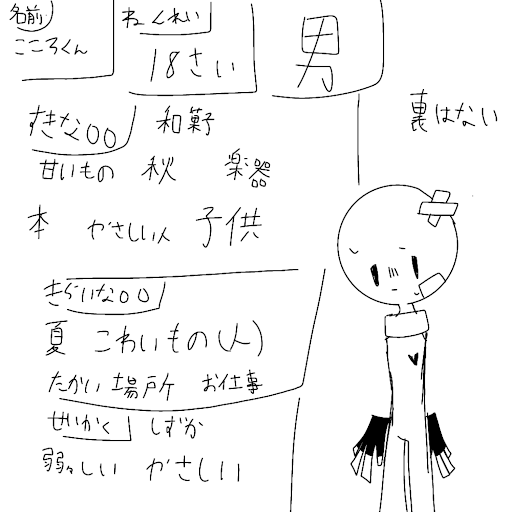 名前
こころくん
ねんれい
18さい
男
裏はない
すきな○○
和菓子
甘いもの 秋 楽器
本 やさしい人 子供
きらいな○○
夏 こわいもの(人)
たかい場所 お仕事
せいかく しずか
弱々しい やさしい